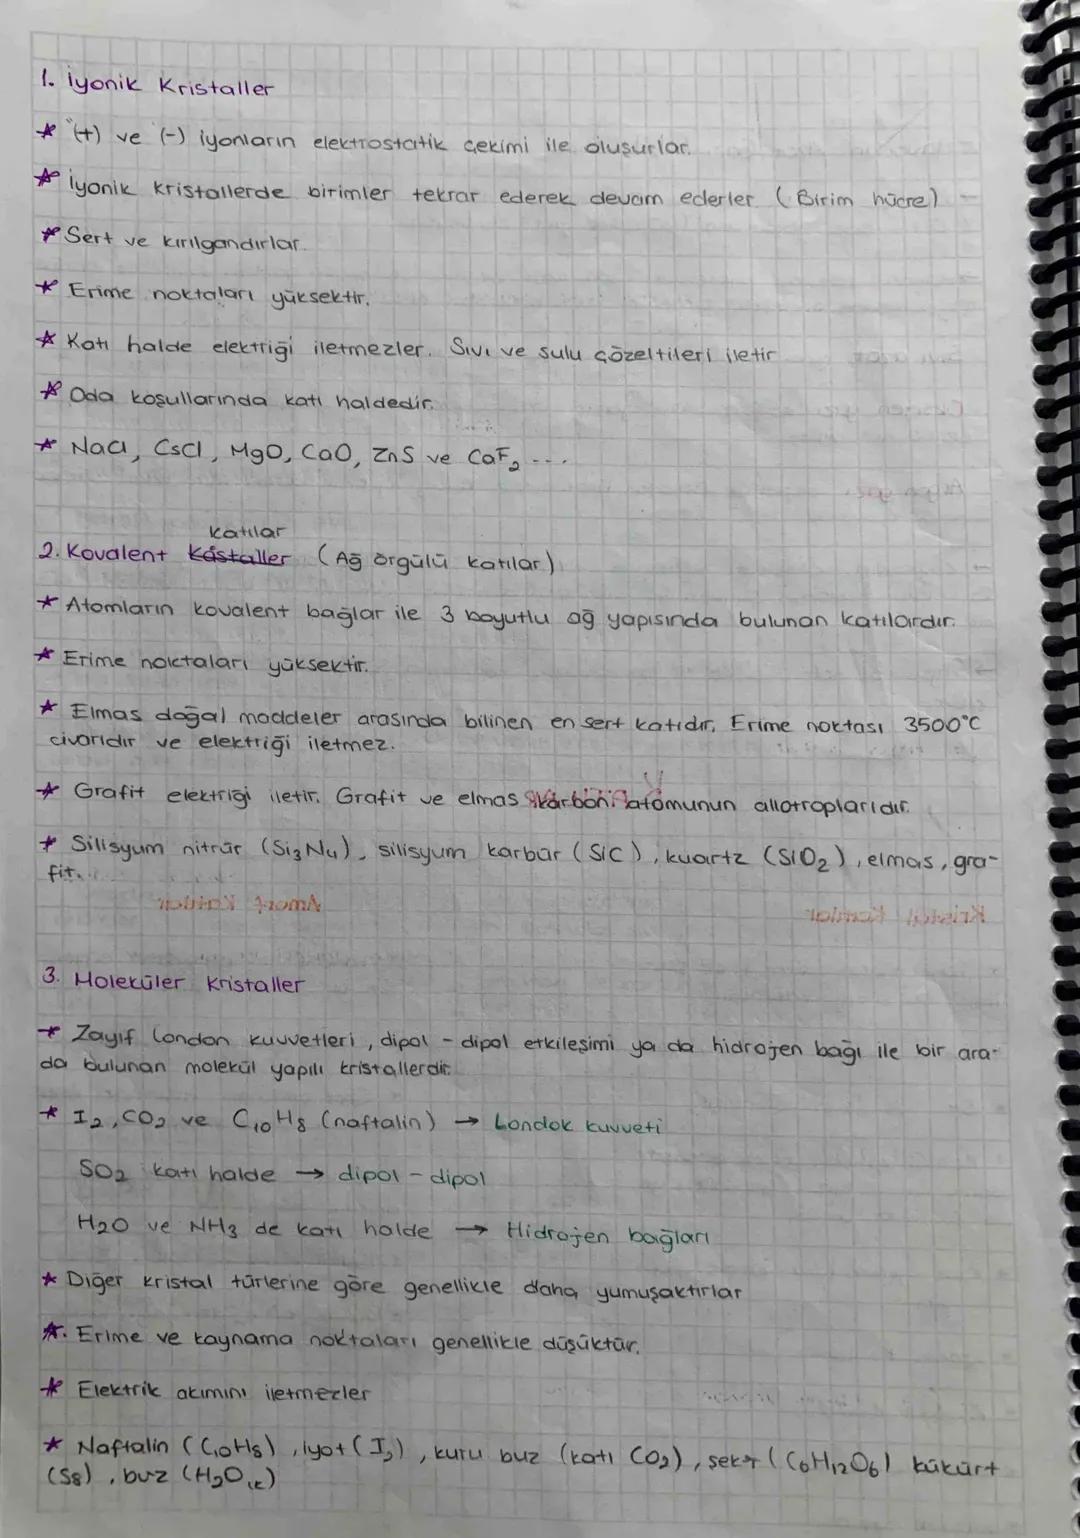 1. İyonik Kristaller
* (+) ve (-) iyonların elektrostatik çekimi ile oluşurlar.
* İyonik kristallerde birimler tekrar ederek devam ederler (Birim hücre)
* Sert ve kırılgandırlar.
* Erime noktaları yüksektir.
* Katı halde elektriği iletmezler. Sıvı ve sulu çözeltileri iletir
* Oda koşullarında katı haldedir.
* NaCl, CsCl, MgO, CaO, ZnS ve CaF₂ ...
katılar
2. Kovalent Kristaller (Ağ örgülü katılar)
* Atomların kovalent bağlar ile 3 boyutlu ağ yapısında bulunan katılardır.
* Erime noktaları yüksektir.
* Elmas doğal maddeler arasında bilinen en sert katıdır. Erime noktası 3500°C
civarıdır ve elektriği iletmez.
* Grafit elektriği iletir. Grafit ve elmas karbon atomunun allotroplarıdır.
* Silisyum nitrür (Si₃N₄), silisyum karbür (SiC), kuartz (SiO₂), elmas, gra-
fit.
Amorf Katılar
Kristal Katılar
3. Moleküler Kristaller
* Zayıf London kuvvetleri, dipol - dipol etkileşimi ya da hidrojen bağı ile bir ara-
da bulunan molekül yapılı kristallerdir.
* I₂, CO₂ ve C₁₀H₈ (naftalin) → Londok kuvveti
SO₂ katı halde → dipol - dipol
H₂O ve NH₃ de katı halde → Hidrojen bağları
* Diğer kristal türlerine göre genellikle daha yumuşaktırlar
*. Erime ve kaynama noktaları genellikle düşüktür.
* Elektrik akımını iletmezler
* Naftalin (C₁₀H₈), iyot (I₂), kuru buz (katı CO₂), şeker (C₆H₁₂O₆) kükürt
(S₈), buz (H₂O(k))